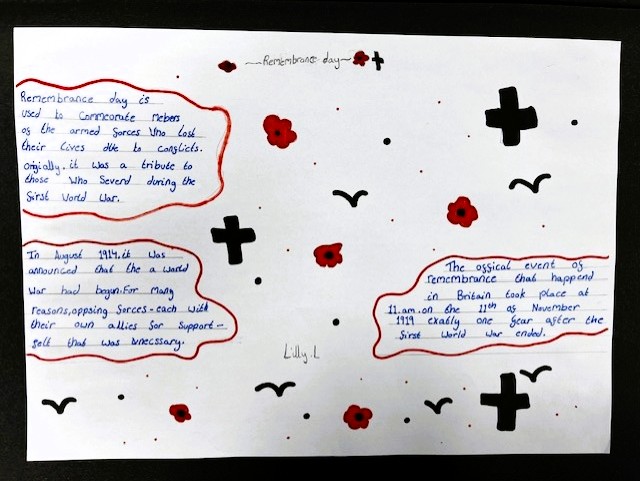 ~Remembrance day~
Remembrance day is
used to Commeorate Mebers
of the armed forces Who lost
their lives due to conflicts.
origially, it was a tribute to
those Who Severd during the
first World War.
In August 1914, it was
announced that the a World
War had begun. For many
reasons, opposing forces - each with
their own allies for support -
felt that was unecssary.
The offical event of
remembrance that happend
in Britain took place at
11.am.on the 11th of November
1919 exatly one year after the
first World War ended.
Lilly.L